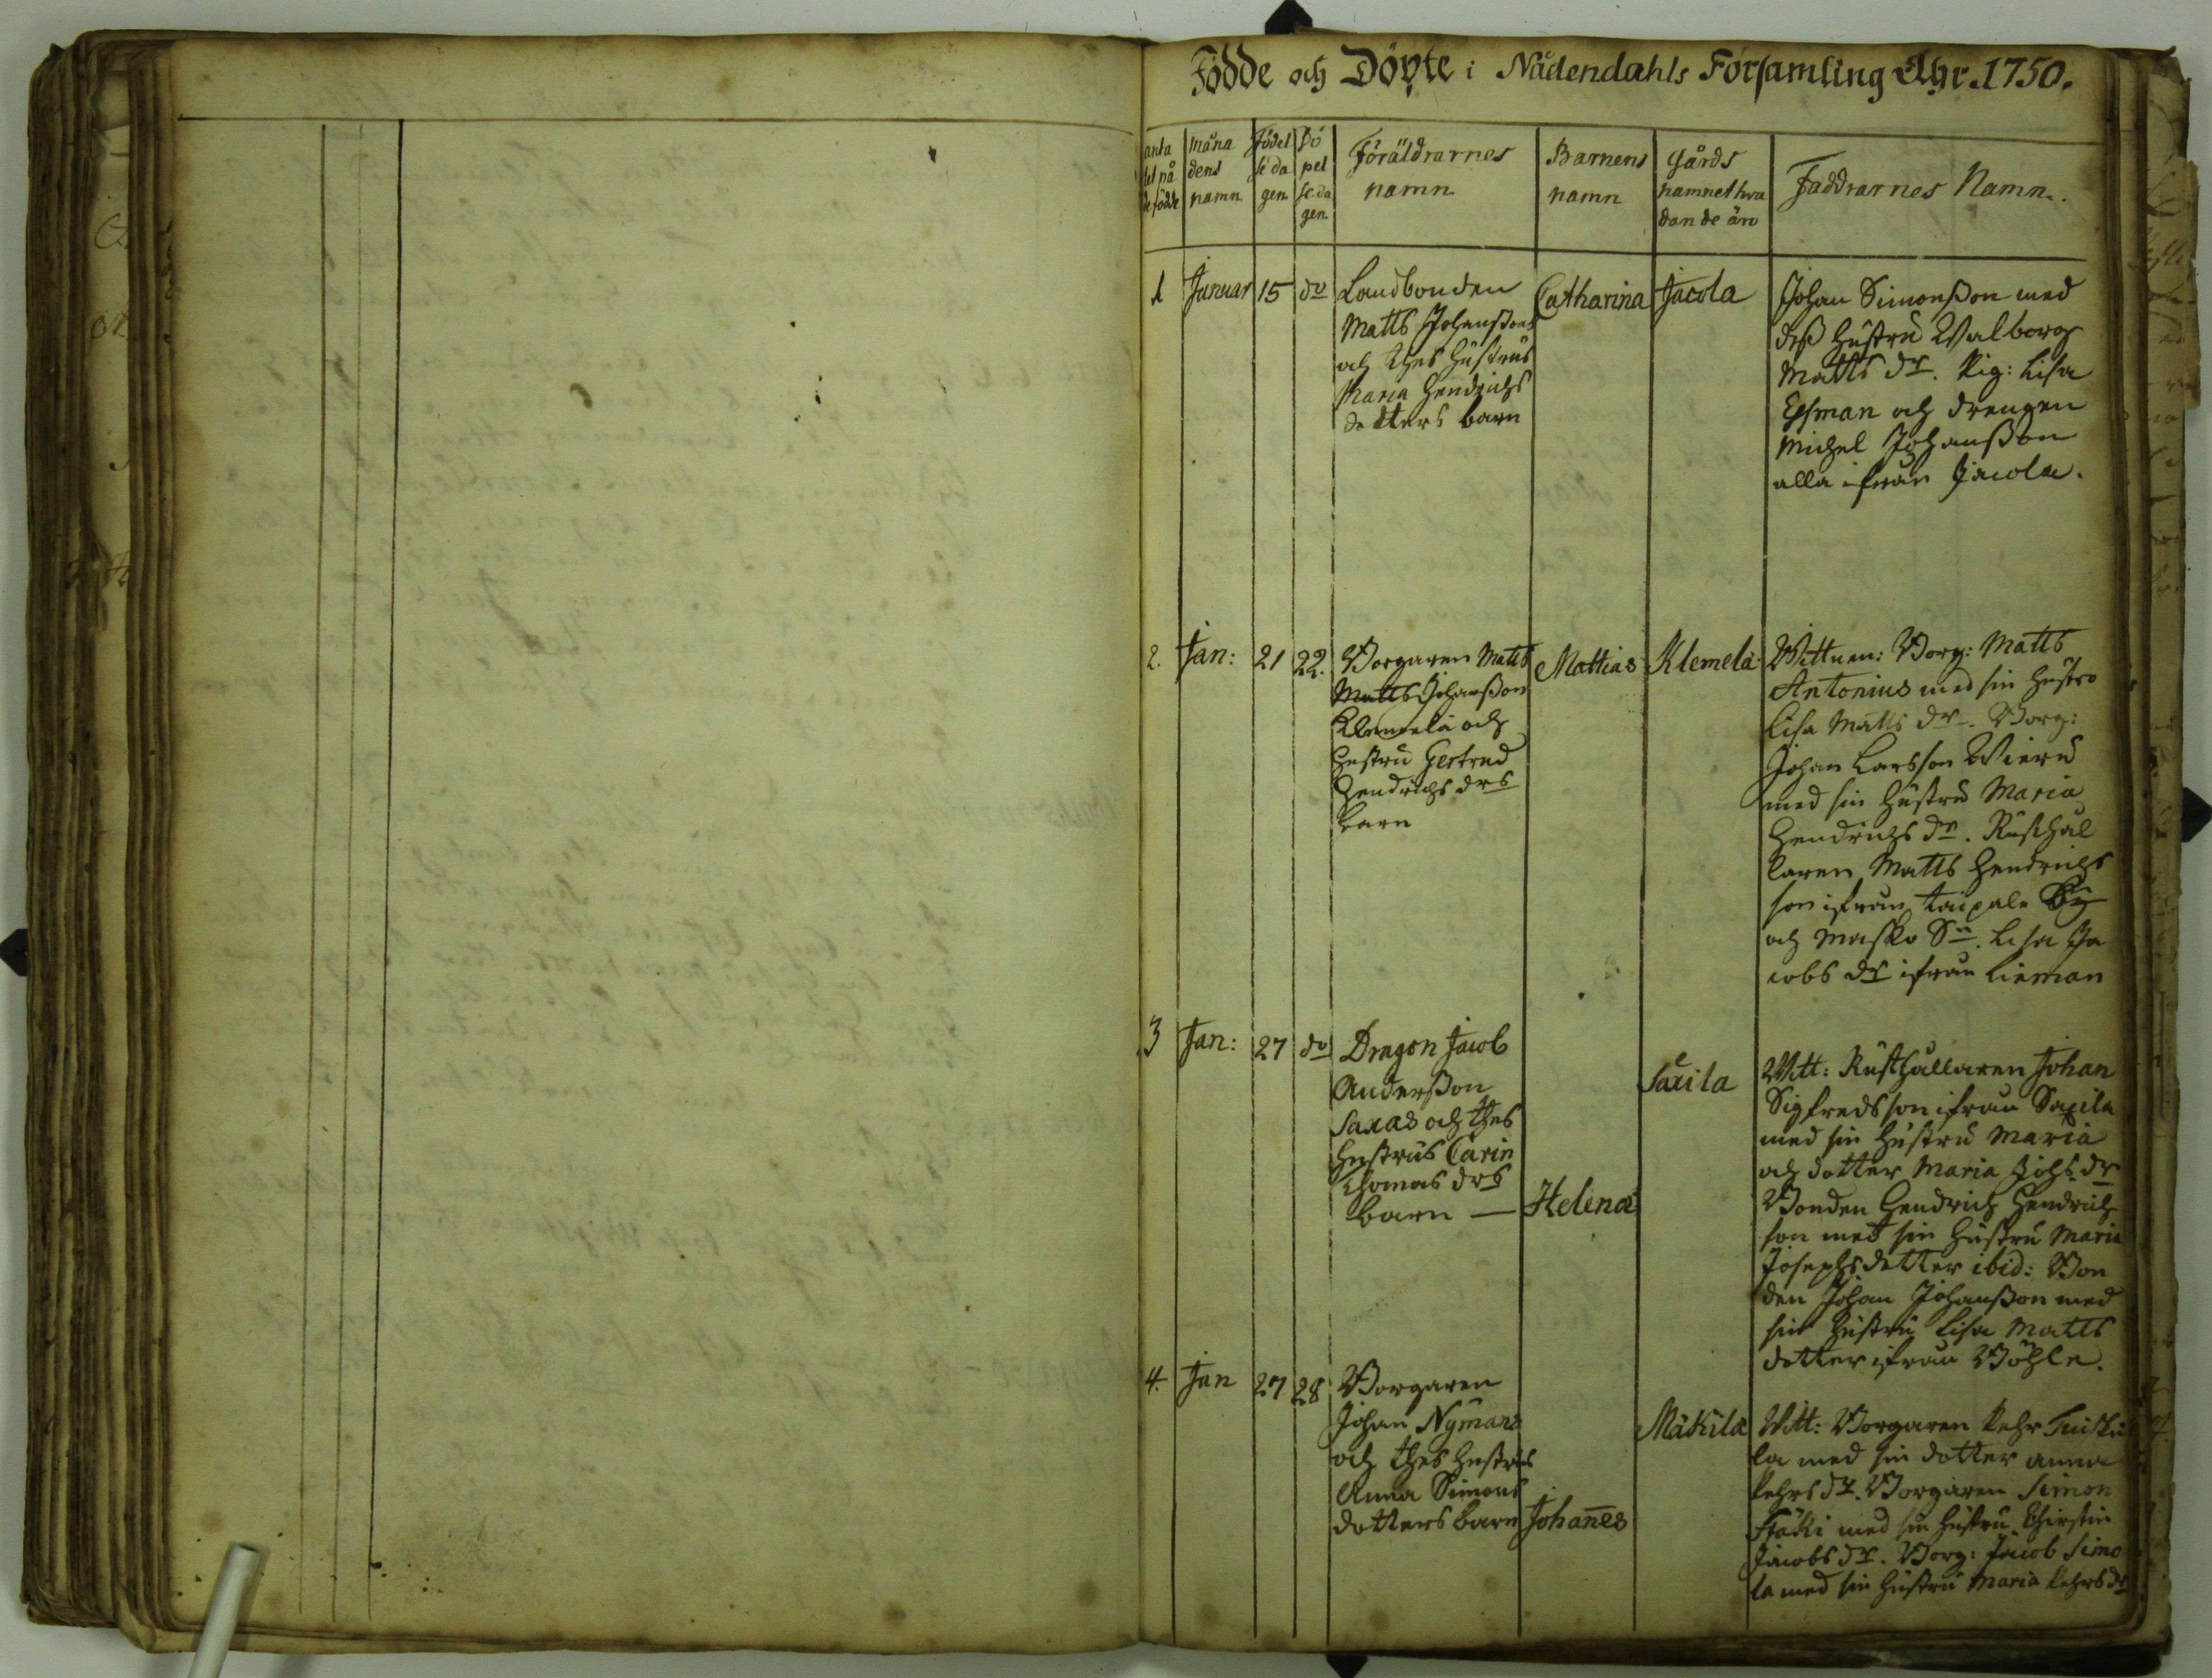 Födde och Döpte i Nådendahls Församling Åhr 1750.
anta
let på
de födde
måna
dens
namn
Födel
se da
gen
Dö
pel
se da
gen
Föräldrarnes
namn
Barnens
namn
Gårds
namnet hva
dan de äro
Faddrarnes Namn.
1 Januar 15 do
Landbonden
Matts Johanssons
och thes hustrus
Maria Hendrichs
dotters barn
Catharina
Jacola
Johan Simonsson med
dess hustru Walborg
Matts dr. Pig: Lisa
och drengen
Michel Johansson
alla ifrån Jacola.
2. Jan: 21 22.
Borgaren Matts
Matts Johansson
Klemelä och
hustru Gertrud
Hendrichs drs
barn
Mattias
Klemelä
Wittnen: Borg: Matts
Antonius med sin hustro
Lisa Matts dr. Borg:
Johan Larsson Wieru
med sin hustru Maria
Hendrichs dr. Rusthål
laren Matts Hendrichs
son ifrån Taipale By
och Masko Sn. Lisa Ja
cobs dr ifrån Lieman
3 Jan: 27 do
Dragon Jacob
Andersson
Saxas och thes
hustrus Carin
Thomas drs
barn —
Helena
Saxila
Witt: Rusthållaren Johan
Sigfredsson ifrån Saxila
med sin hustru Maria
och dotter Maria Johs dr
Bonden Hendrich Hendrich
son med sin hustru Maria
Josephsdotter ibid: Bon
den Johan Johansson med
sin hustru Lisa Matts
dotter ifrån
4. Jan 27 28
Borgaren
Johan Nymans
och thes hustrus
Anna Simons
dotters barn
Johanes
Mäkilä
Witt: Borgaren Pehr
la med sin dotter Anna
Pehrs dr. Borgaren Simon
Stäki med sin hustru Christin
Jacobs dr. Borg: Jacob Simo
la med sin hustru Maria Pehrs dr